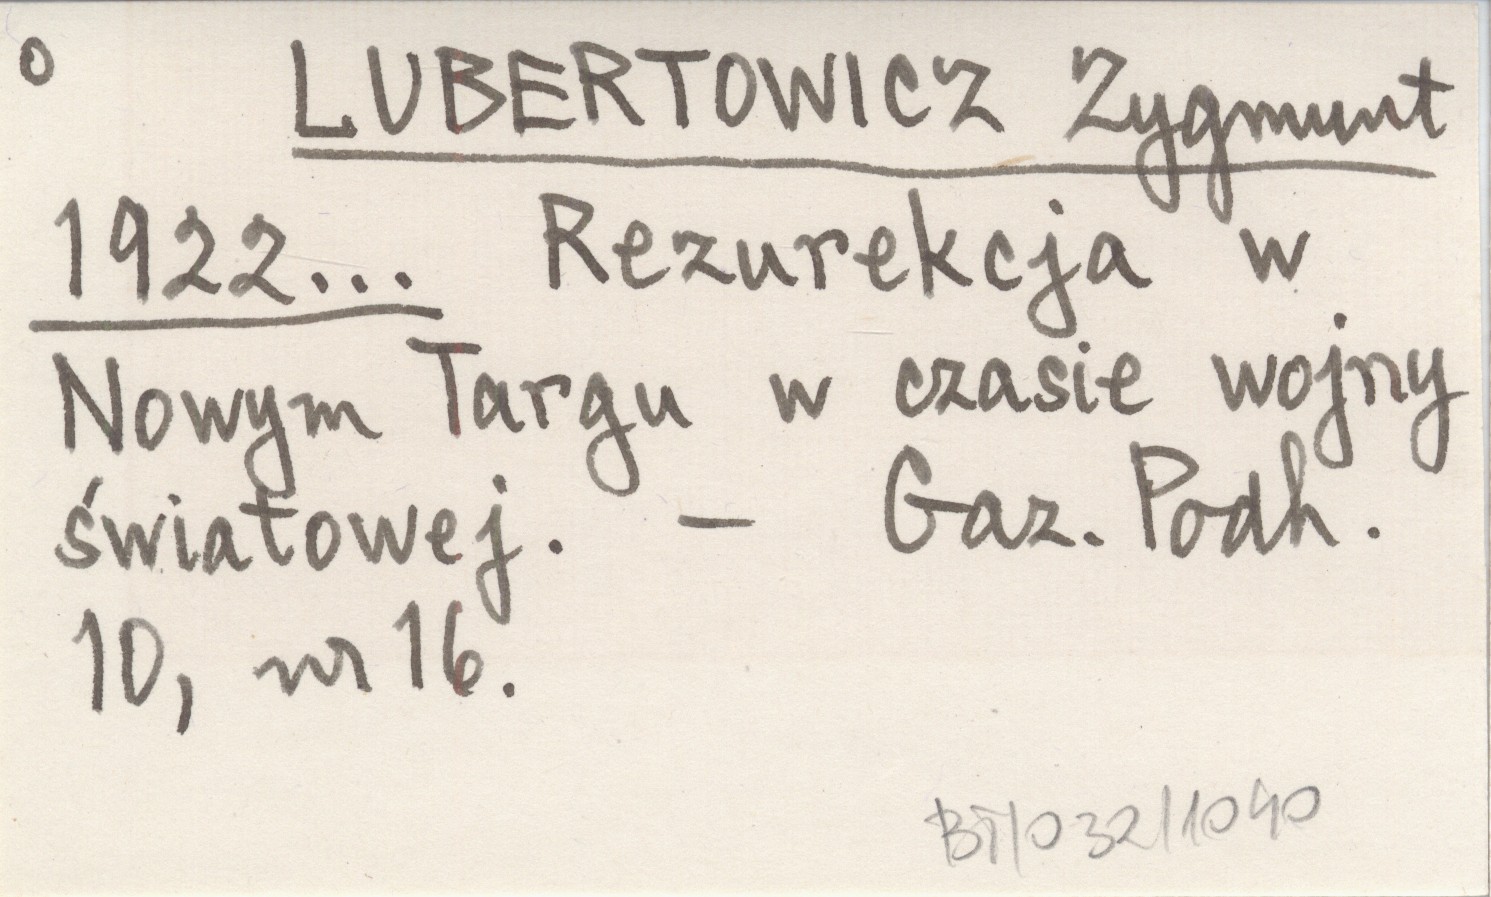 o LUBERTOWICZ Zygmunt
1922... Rezurekcja w
Nowym Targu w czasie wojny
światowej. — Gaz. Podh.
10, nr 16.
BT/032/1090